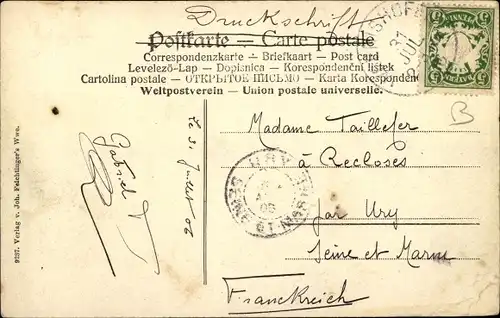 Druckschrift
Postkarte — Carte postale
Correspondenzkarte – Briefkaart – Post card
Levelező-Lap – Dopisnica – Korespondenční lístek
Cartolina postale – ОТКРЫТОЕ ПИСЬМО – Karta Korespondencyjna
Weltpostverein – Union postale universelle.
31
JUL
BAYERN
5
B
Madame Taillefer
à Recloses
par Ury
Seine et Marne
Franckreich
URY
SEINE ET MARNE
Le 31 Juillet 06
Gabriel T
9257. Verlag v. Joh. Feichtinger's Wwe.